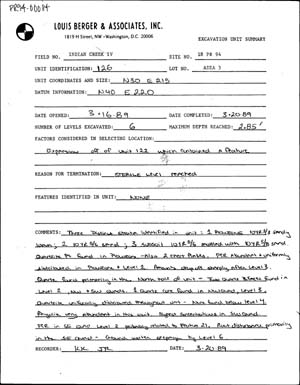 PR94-00084
LOUIS BERGER & ASSOCIATES, INC.
1819 H Street, NW • Washington, D.C. 20006
EXCAVATION UNIT SUMMARY
FIELD NO. INDIAN CREEK IV SITE NO. 18 PR 94
UNIT IDENTIFICATION: 126 LOT NO. AREA 3
UNIT COORDINATES AND SIZE: N30 E215
DATUM INFORMATION: N40 E220
DATE OPENED: 3-16-89 DATE COMPLETED: 3-20-89
NUMBER OF LEVELS EXCAVATED: 6 MAXIMUM DEPTH REACHED: 2.85'
FACTORS CONSIDERED IN SELECTING LOCATION:
Expansion off of unit 122 which contained a feature
REASON FOR TERMINATION: STERILE LEVEL reached
FEATURES IDENTIFIED IN UNIT: NONE
COMMENTS: Three Distinct strata identified in unit: 1 PLOWZONE 10YR 4/3 sandy
loam; 2 10YR 5/6 sand; 3 subsoil 10YR 6/3 mottled with 10YR 5/8 sand.
found in Plowzone - Also 2 chert flakes. FCR Abundant + uniformly
distributed in Plowzone + Level 2. Amounts drop off sharply after Level 3.
found primarily in the North half of unit - Two Quartz found in
Level 2, quads. Quartz found in Level 3.
Quartzite uniformly distributed throughout unit - None found below level 4.
very abundant in this unit. Highest concentrations in
FCR in SE quad Level 2 probably related to Feature 21. Root disturbance primarily
in the SE quad - Ground water seepage by Level 6
RECORDER: KK JR DATE: 3-20-89